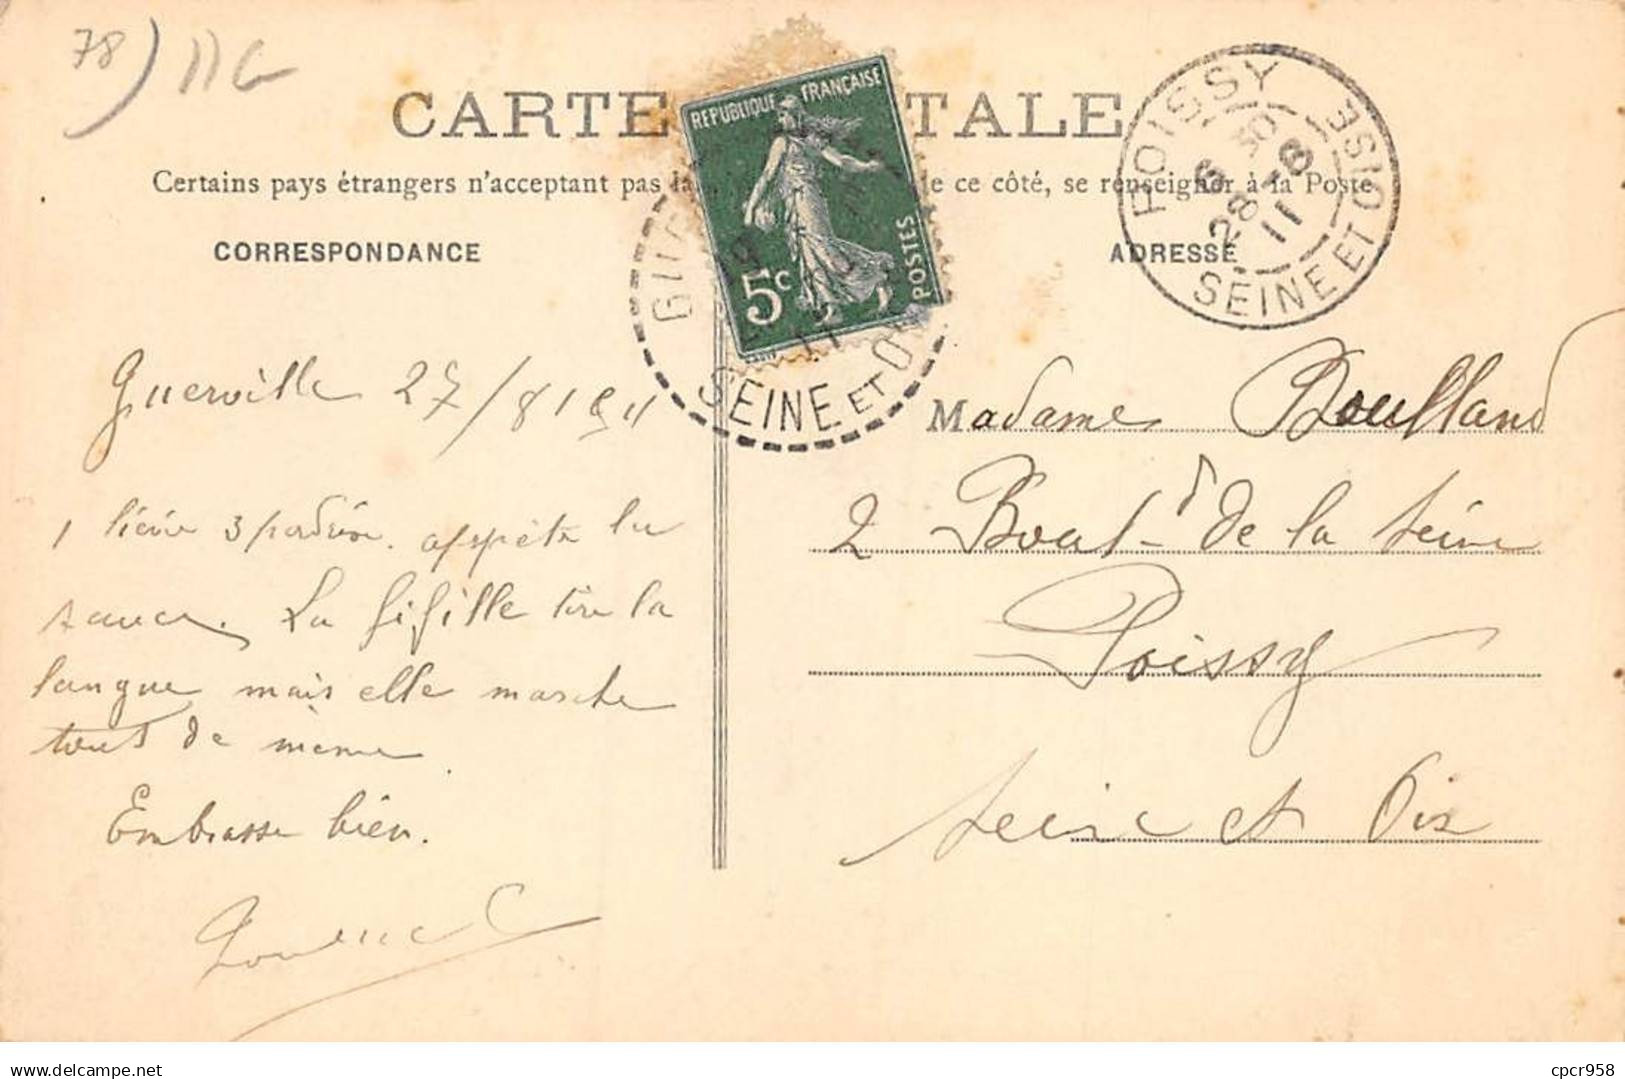 78) 11G
CARTE TALE
Certains pays étrangers n'acceptent pas la ce côté, se renseigner à la Poste
CORRESPONDANCE
ADRESSE
REPUBLIQUE FRANÇAISE
5c POSTES
SEINE ET O
POISSY
6 30
28 -8
11
SEINE ET OISE
Guerville 27/8 1911
1 lièvre 3 perdrix. apprête la
sauce. La fifille tire la
langue mais elle marche
tout de même
Embrasse bien.
Madame Boulland
2 Boul-d de la Seine
Poissy
Seine et Oise
www.delcampe.net
cpcr958